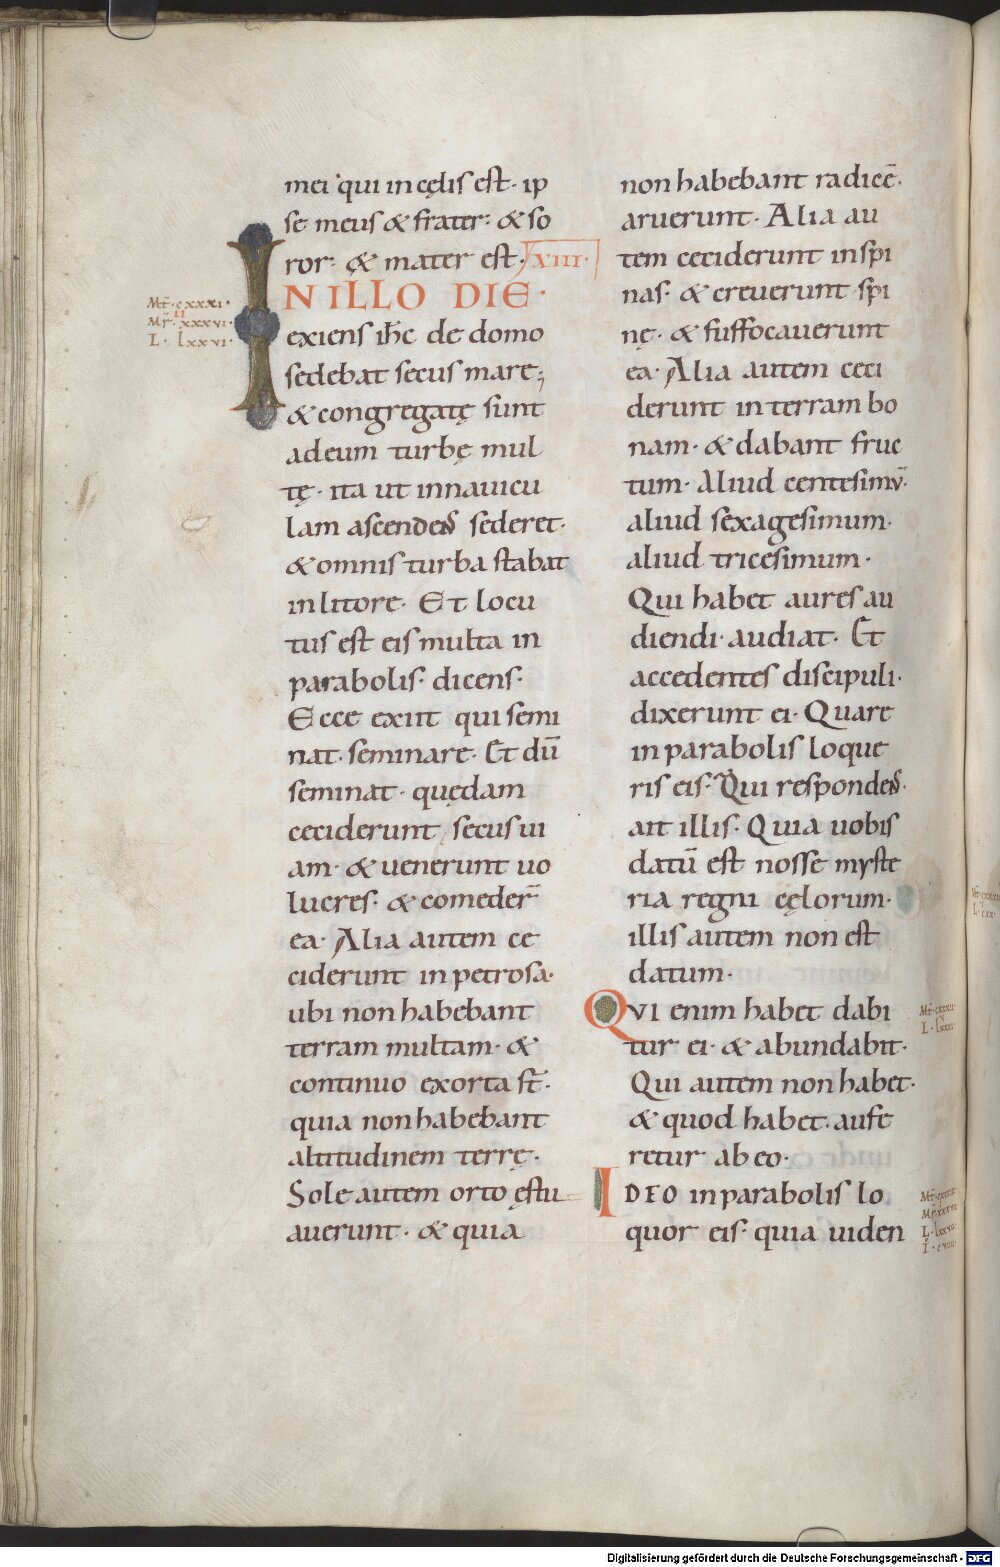 mei qui in cęlis est · ip
se meus & frater · & so
ror · & mater est · XIII ·
IN ILLO DIE ·
Mt̄ · cxxxi ·
II
Mr̄ · xxxvi ·
L · lxxvi ·
exiens ih̄c de domo
sedebat secus mare ·
& congregatę sunt
ad eum turbę mul
tę · ita ut in nauicu
lam ascendens sederet ·
& omnis turba stabat
in litore · Et locu
tus est eis multa in
parabolis · dicens ·
Ecce exiit qui semi
nat · seminare · Et dū
seminat · quędam
ceciderunt secus ui
am · & uenerunt uo
lucres · & comeder̄
ea · Alia autem ce
ciderunt in petrosa ·
ubi non habebant
terram multam · &
continuo exorta st̄ ·
quia non habebant
altitudinem terrę ·
Sole autem orto ęstu
auerunt · & quia
non habebant radicē ·
aruerunt · Alia au
tem ceciderunt in spi
nas · & creuerunt spi
nę · & suffocauerunt
ea · Alia autem ceci
derunt in terram bo
nam · & dabant fruc
tum · Aliud centesimū ·
aliud sexagesimum ·
aliud tricesimum ·
Qui habet aures au
diendi · audiat · Et
accedentes discipuli ·
dixerunt ei · Quare
in parabolis loque
ris eis · Qui respondens ·
ait illis · Quia uobis
datū est nosse myste
ria regni cęlorum ·
illis autem non est
datum ·
QVI enim habet dabi
tur ei · & abundabit ·
Qui autem non habet ·
& quod habet · aufe
retur ab eo ·
IDEO in parabolis lo
quor eis · quia uiden
Digitalisierung gefördert durch die Deutsche Forschungsgemeinschaft - DFG